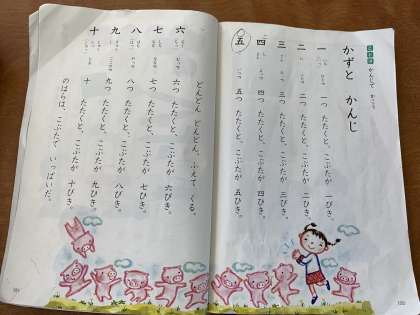 かずと かんじ
一 一つ たたくと、こぶたが 一ぴき。
二 二つ たたくと、こぶたが 二ひき。
三 三つ たたくと、こぶたが 三びき。
四 四つ たたくと、こぶたが 四ひき。
五 五つ たたくと、こぶたが 五ひき。
どんどん どんどん、ふえて くる。
六 六つ たたくと、こぶたが 六ぴき。
七 七つ たたくと、こぶたが 七ひき。
八 八つ たたくと、こぶたが 八ぴき。
九 九つ たたくと、こぶたが 九ひき。
十 十 たたくと、こぶたが 十ぴき。
のはらは、こぶたで いっぱいだ。